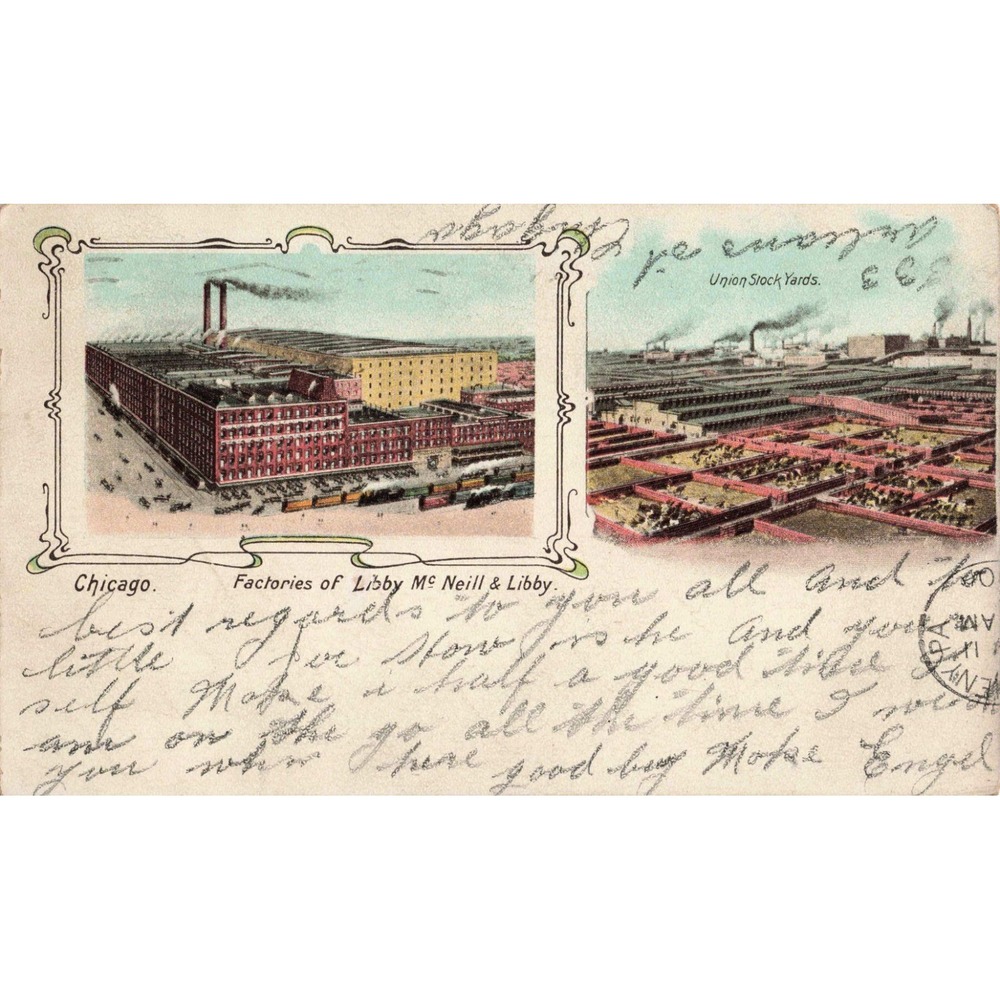 333
Adams st Chicago
Union Stock Yards.
Chicago. Factories of Libby Mc Neill & Libby.
best regards to you all and to
little Joe How is he and your
self Make i half a good time I
am on the go all the time I
you when here good by Moke Engel
PA.
AM